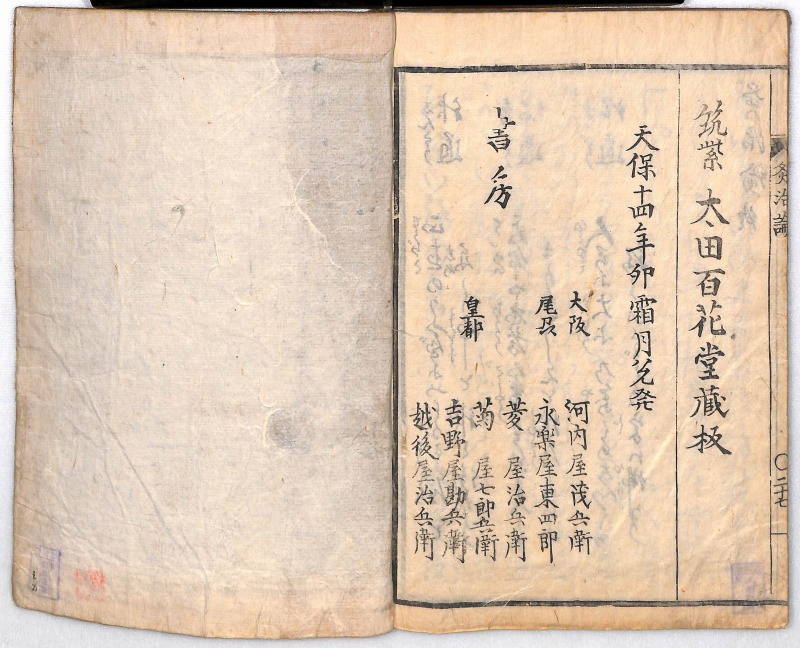 灸治論
〇二十七
筑紫 太田百花堂蔵板
天保十四年卯霜月兌発
書房
大阪 河内屋茂兵衛
尾州 永楽屋東四郎
皇都 菱屋治兵衛
菊屋七郎兵衛
吉野屋勘兵衛
越後屋治兵衛